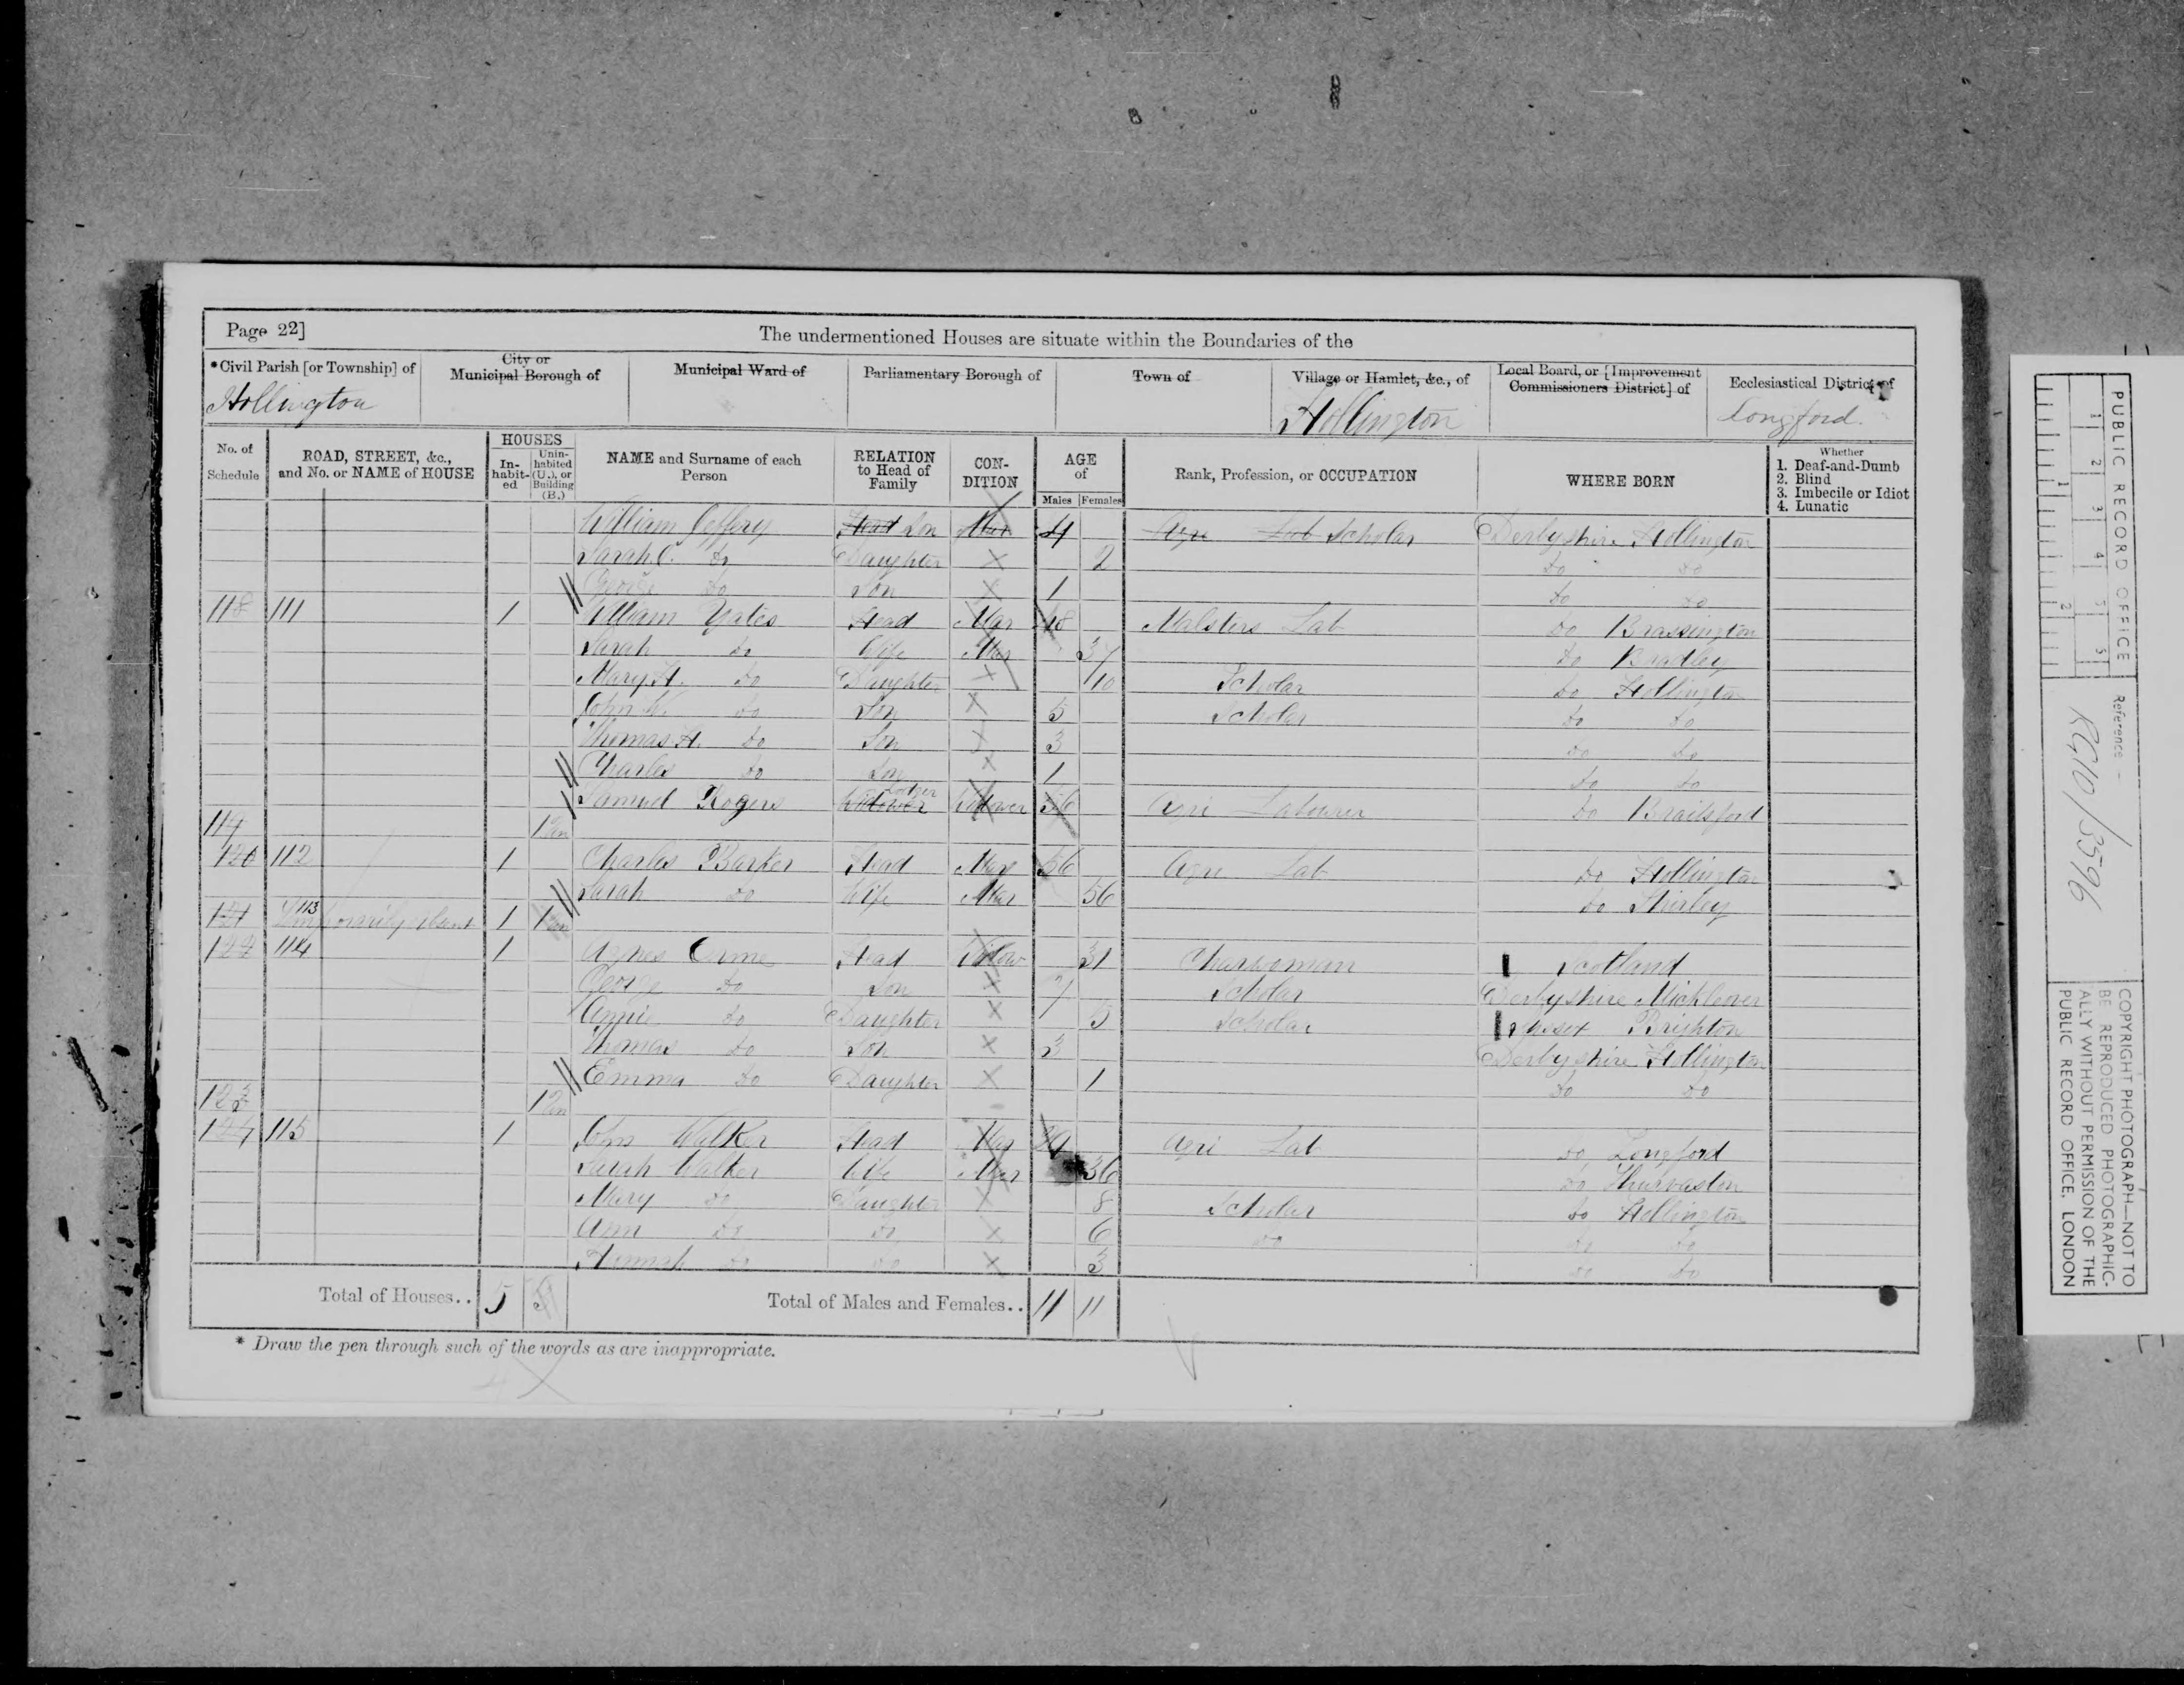 Page 22]
The undermentioned Houses are situate within the Boundaries of the
*Civil Parish [or Township] of
City or Municipal Borough of
Municipal Ward of
Parliamentary Borough of
Town of
Village or Hamlet, &c., of
Local Board, or [Improvement Commissioners District] of
Ecclesiastical District of
Hollington
Hollington
Longford.
No. of Schedule
ROAD, STREET, &c., and No. or NAME of HOUSE
HOUSES
In-habit-ed
Unin-habited (U.), or Building (B.)
NAME and Surname of each Person
RELATION to Head of Family
CON-DITION
AGE of
Males Females
Rank, Profession, or OCCUPATION
WHERE BORN
Whether
1. Deaf-and-Dumb
2. Blind
3. Imbecile or Idiot
4. Lunatic
William Jeffery Head Son Mar 4 Agri Lab Scholar Derbyshire Hollington
Sarah C. Do Daughter X 2 Do Do
George Do Son X 1 Do Do
118 111 1 William Yates Head Mar 48 Malsters Lab Do Brassington
Sarah Do Wife Mar 37 Do Bradley
Mary A. Do Daughter X 10 Scholar Do Hollington
John W. Do Son X 5 Scholar Do Do
Thomas H. Do Son X 3 Do Do
Charles Do Son X 1 Do Do
Samuel Rogers Widower Lodger Widower 56 Agri Labourer Do Brailsford
119 1 Un
120 112 1 Charles Barker Head Mar 56 Agri Lab Do Hollington
Sarah Do Wife Mar 56 Do Shirley
121 113 Temporarily absent 1 1 Un
122 114 1 Agnes Orme Head Widow 31 Charwoman Scotland
George Do Son X 7 Scholar Derbyshire Mickleover
Annie Do Daughter X 5 Scholar Sussex Brighton
Thomas Do Son X 3 Derbyshire Hollington
Emma Do Daughter X 1 Do Do
123 1 Un
124 115 1 Walker Head Mar 39 Agri Lab Do Longford
Sarah Walker Wife Mar 36 Do Thurvaston
Mary Do Daughter X 8 Scholar Do Hollington
Ann Do Do X 6 Do Do Do
Hannah Do Do X 3 Do Do
Total of Houses.. 5 5
Total of Males and Females.. 11 11
* Draw the pen through such of the words as are inappropriate.
PUBLIC RECORD OFFICE
Reference:-
RG10/3596
COPYRIGHT PHOTOGRAPH—NOT TO
BE REPRODUCED PHOTOGRAPHIC-
ALLY WITHOUT PERMISSION OF THE
PUBLIC RECORD OFFICE, LONDON